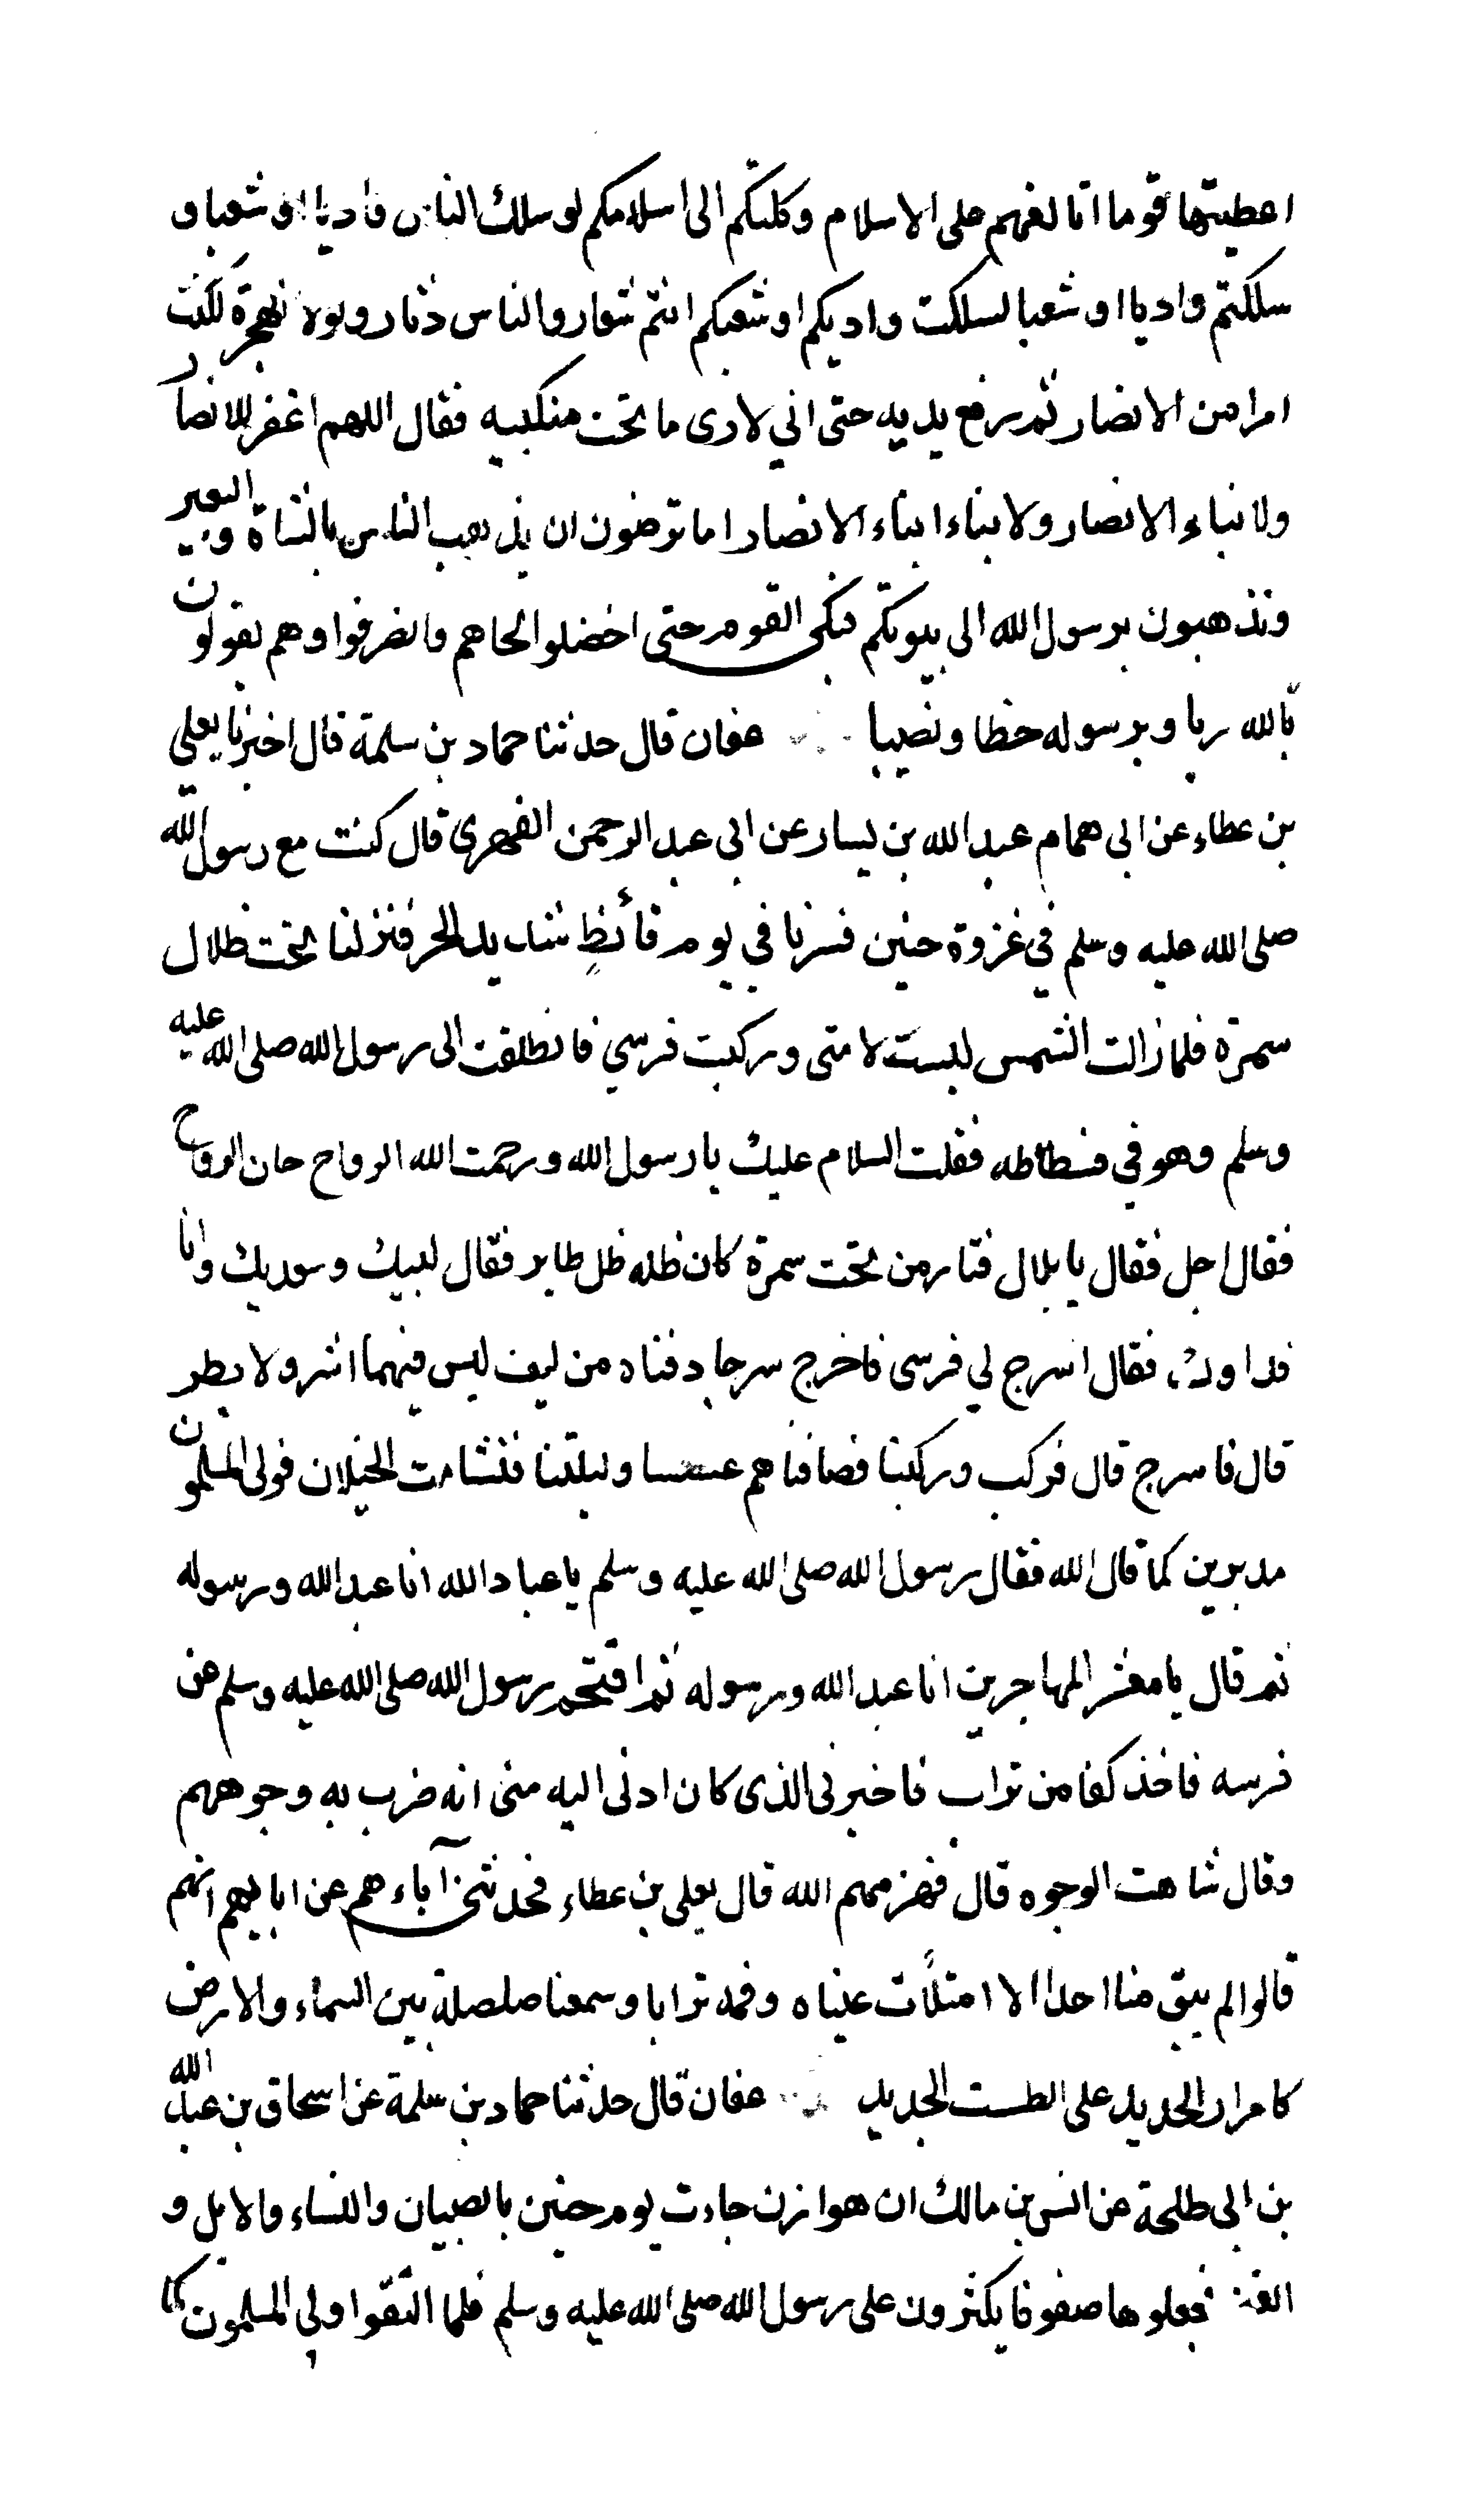 اعطيتها قوما اتالفهم على الاسلام وكلتكم الى اسلامكم لو سلك الناس واديا او شعبا و
سلكتم واديا او شعبا لسلكت واديكم او شعبكم انتم شعار والناس دثار ولولا الهجرة لكنت
امرا من الانصار ثم رفع يديه حتى اني لارى ما تحت منكبيه فقال اللهم اغفر للانصار
ولابناء الانصار ولابناء ابناء الانصار اما ترضون ان يذهب الناس بالشاة والبعير
وتذهبون برسول الله الى بيوتكم فبكى القوم حتى اخضلوا لحاهم وانصرفوا وهم يقولون
بالله ربا وبرسوله حظا ونصيبا عفان قال حدثنا حماد بن سلمة قال اخبرنا يعلي
بن عطاء عن ابي همام عبد الله بن يسار عن ابي عبد الرحمن الفهري قال كنت مع رسول الله
صلى الله عليه وسلم في غزوة حنين فسرنا في يوم قائظٍ شديد الحر فنزلنا تحت ظلال
سمرة فلما زالت الشمس لبست لامتى وركبت فرسي فانطلقت الى رسول الله صلى الله عليه
وسلم وهو في فسطاطه فقلت السلام عليك يا رسول الله ورحمت الله الرواح حان الرواح
فقال اجل فقال يا بلال فثار من تحت سمرة كان ظله ظل طاير فقال لبيك وسعديك وانا
فداوك، فقال اسرج لي فرسى فاخرج سرجا دفتاه من ليف ليس فيهما اشر ولا بطر
قال فاسرج قال فركب وركبنا فصاففناهم عشيتنا وليلتنا فتشامت الخيلان فولى المسلمون
مدبرين كما قال الله فقال رسول الله صلى الله عليه وسلم يا عباد الله انا عبد الله ورسوله
ثم قال يا معشر المهاجرين انا عبد الله ورسوله ثم اقتحم رسول الله صلى الله عليه وسلم عن
فرسه فاخذ كفا من تراب فاخبرنى الذى كان ادنى اليه منى انه ضرب به وجوههم
وقال شاهت الوجوه قال فهزمهم الله قال يعلى بن عطاء فحدثنى آباءهم عن ابايهم انهم
قالوا لم يبق منا احد الا امتلأت عيناه وفمه ترابا وسمعنا صلصلة بين السماء والارض
كامرار الحديد على الطست الجديد عفان قال حدثنا حماد بن سلمة عن اسحاق بن عبد الله
بن ابى طلحة عن انس بن مالك ان هوازن جاءت يوم حنين بالصبيان والنساء والابل و
الغنم فجعلوها صفوفا يكثرون على رسول الله صلى الله عليه وسلم فلما التقوا ولي المسلمون كما